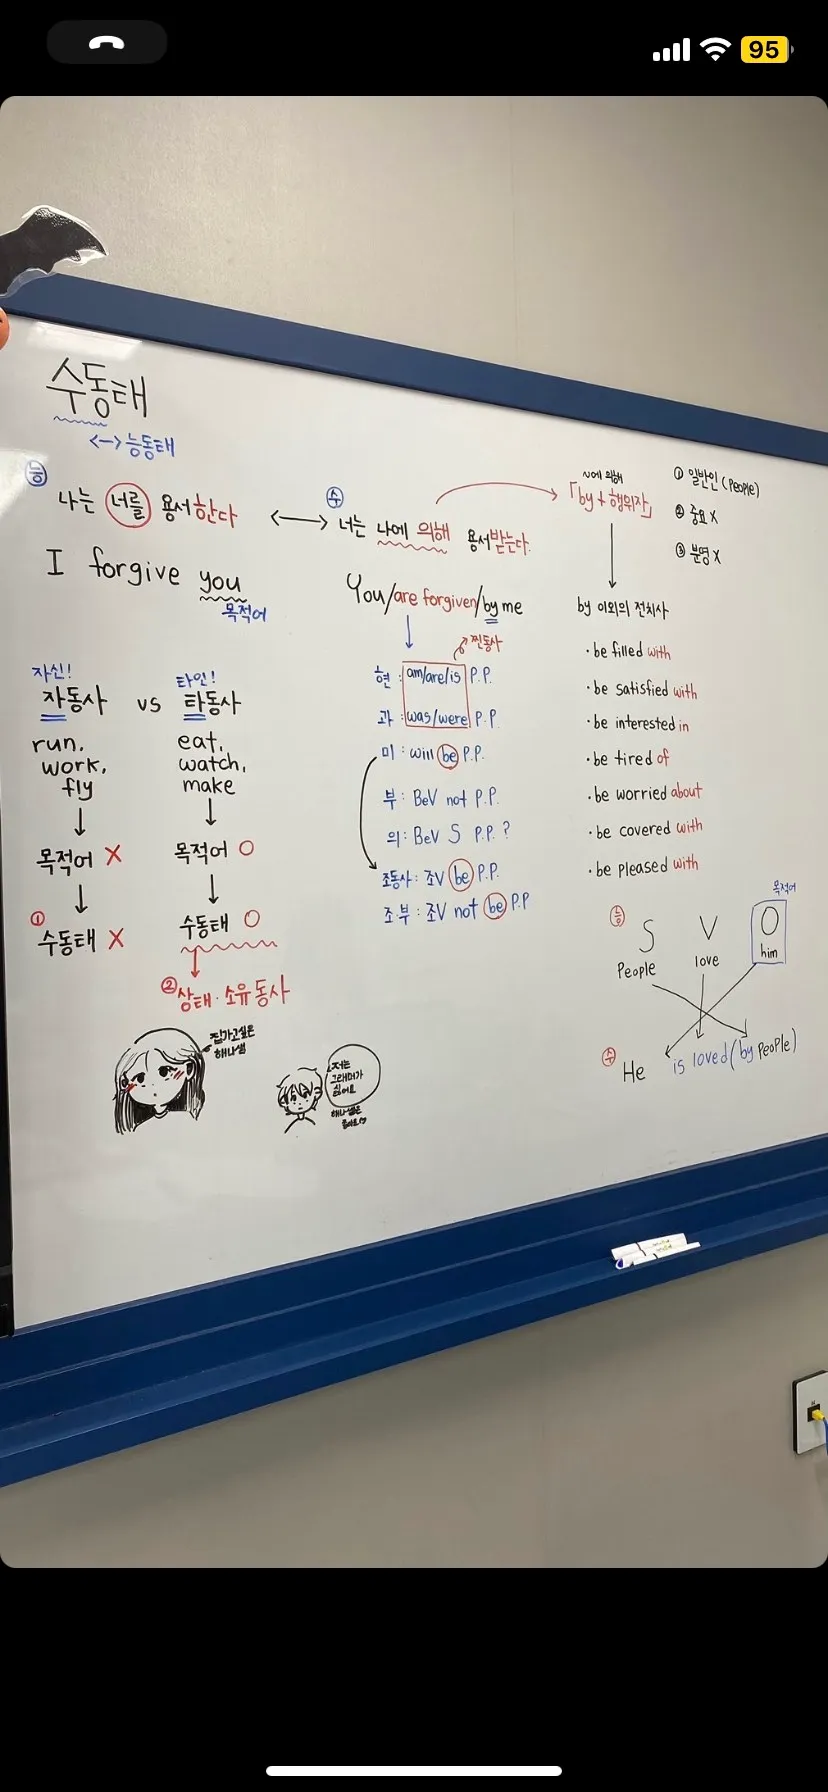 95
수동태
<-> 능동태
능
나는 너를 용서한다
I forgive you
목적어
수
너는 나에 의해 용서받는다.
You/are forgiven/by me
~에 의해
「by + 행위자」
① 일반인 (People)
② 중요 X
③ 분명 X
by 이외의 전치사
· be filled with
· be satisfied with
· be interested in
· be tired of
· be worried about
· be covered with
· be pleased with
찐동사
현 : am/are/is P.P.
과 : was/were P.P.
미 : will be P.P.
부 : BeV not P.P.
의 : BeV S P.P. ?
조동사 : 조V be P.P.
조.부 : 조V not be P.P
자신!
자동사
vs
타인!
타동사
run,
work,
fly
목적어 X
① 수동태 X
eat,
watch,
make
목적어 O
수동태 O
② 상태·소유 동사
집가고싶은
해나쌤
저는
그래머가
싫어요
해나쌤은
능
S V O
목적어
People love him
수
He is loved (by People)